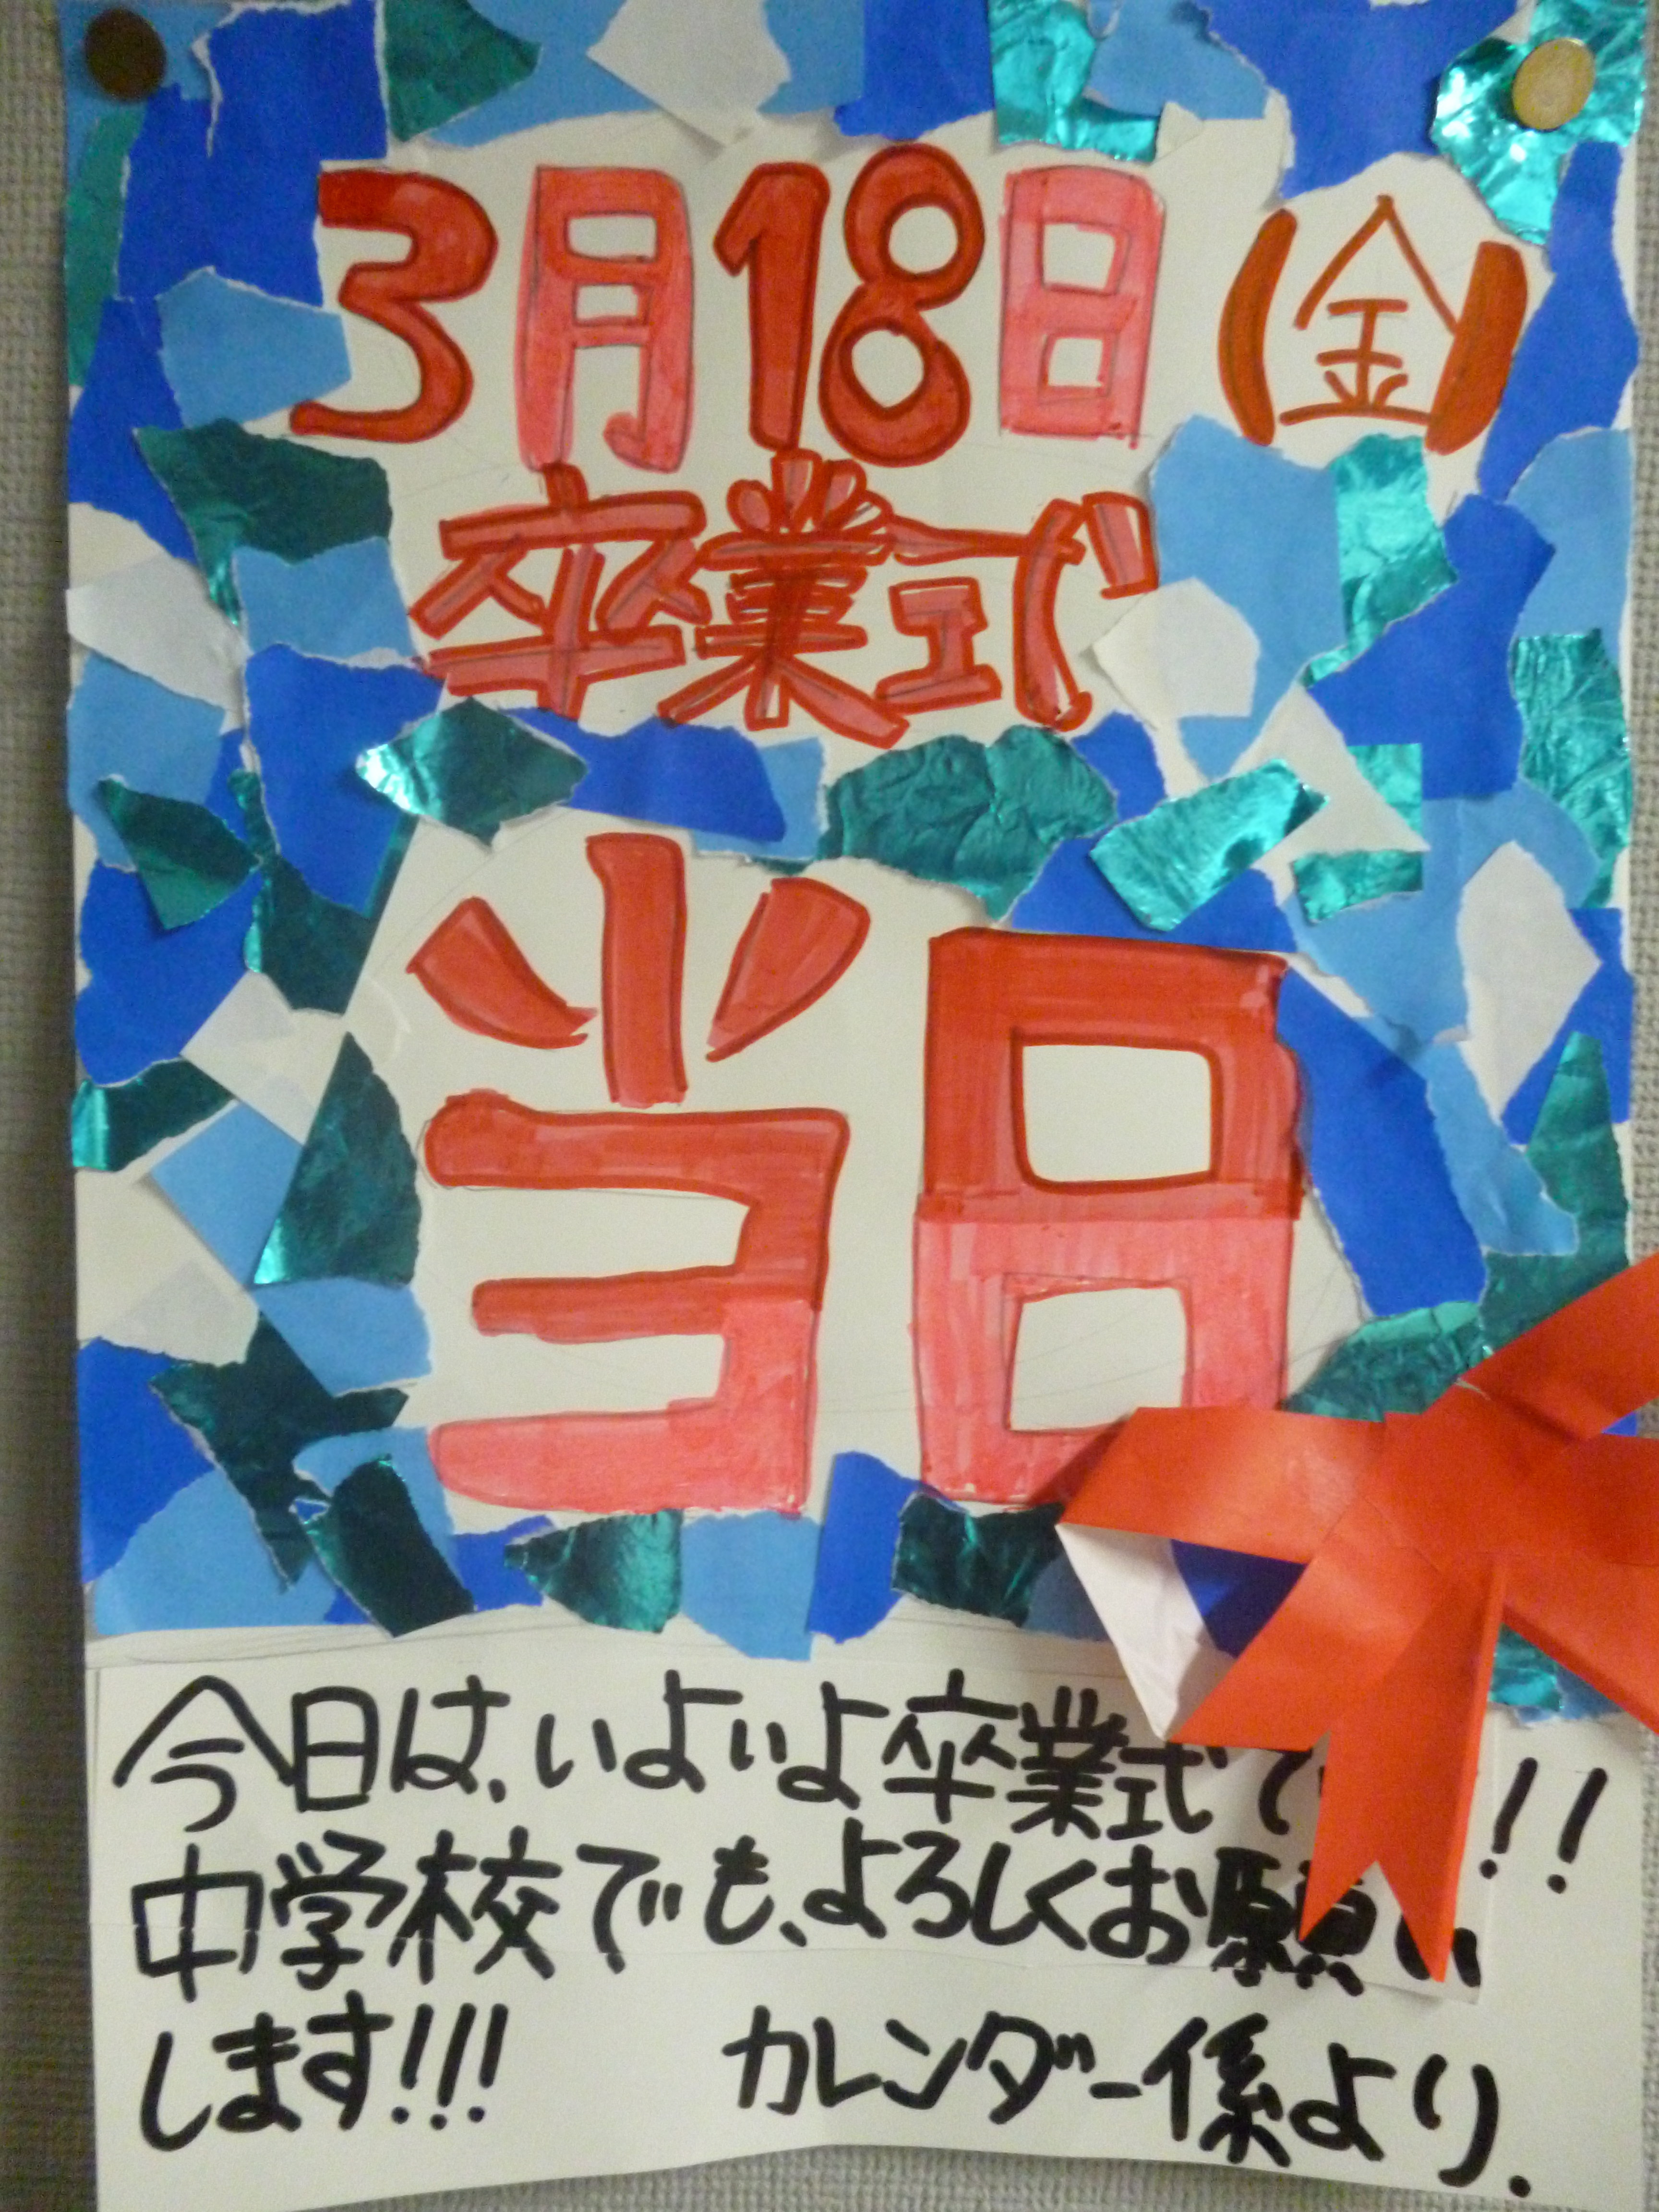 3月18日(金)
卒業式
当日
今日は、いよいよ卒業式で!!
中学校でも、よろしくお願い
します!!!
カレンダー係より.